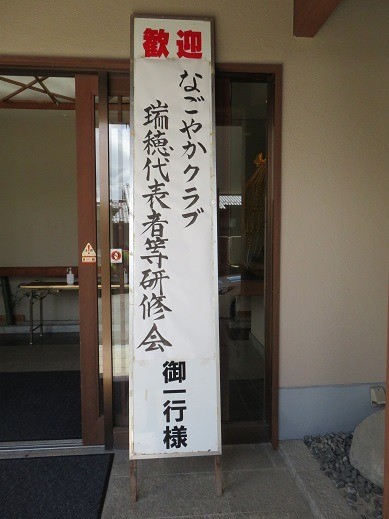 歓迎
なごやかクラブ
瑞穂代表者等研修会
御一行様